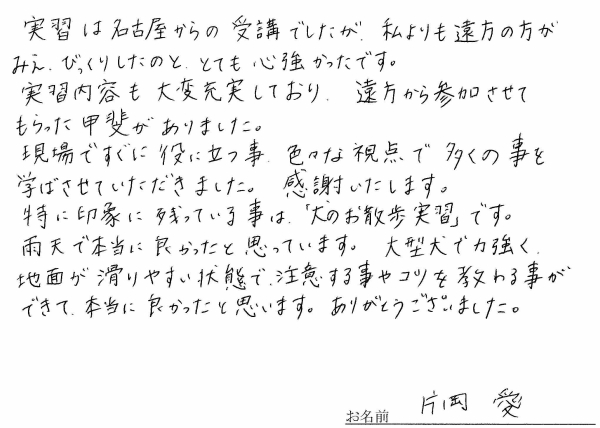 実習は名古屋からの受講でしたが、私よりも遠方の方が
みえ、びっくりしたのと、とても心強かったです。
実習内容も大変充実しており、遠方から参加させて
もらった甲斐がありました。
現場ですぐに役に立つ事、色々な視点で多くの事を
学ばさせていただきました。感謝いたします。
特に印象に残っている事は、「犬のお散歩実習」です。
雨天で本当に良かったと思っています。大型犬で力強く、
地面が滑りやすい状態で、注意する事やコツを教わる事が
できて、本当に良かったと思います。ありがとうございました。
お名前 片岡 愛